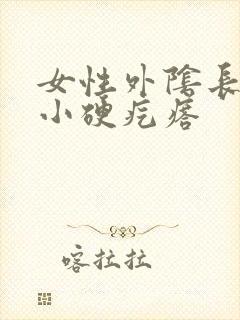 女性外陰長
小硬疙瘩
喀拉拉